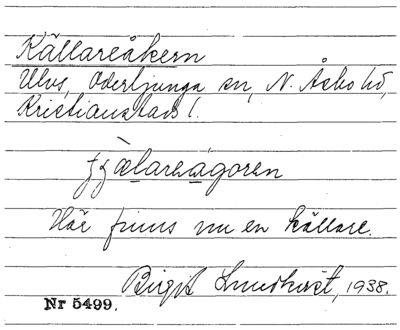 Källareåkern
Ulvs, Oderljunga sn, N. Åsbo hd,
Kristianstads l.
Här finns nu en källare.
Birgit Lundkvist, 1938.
Nr 5499.